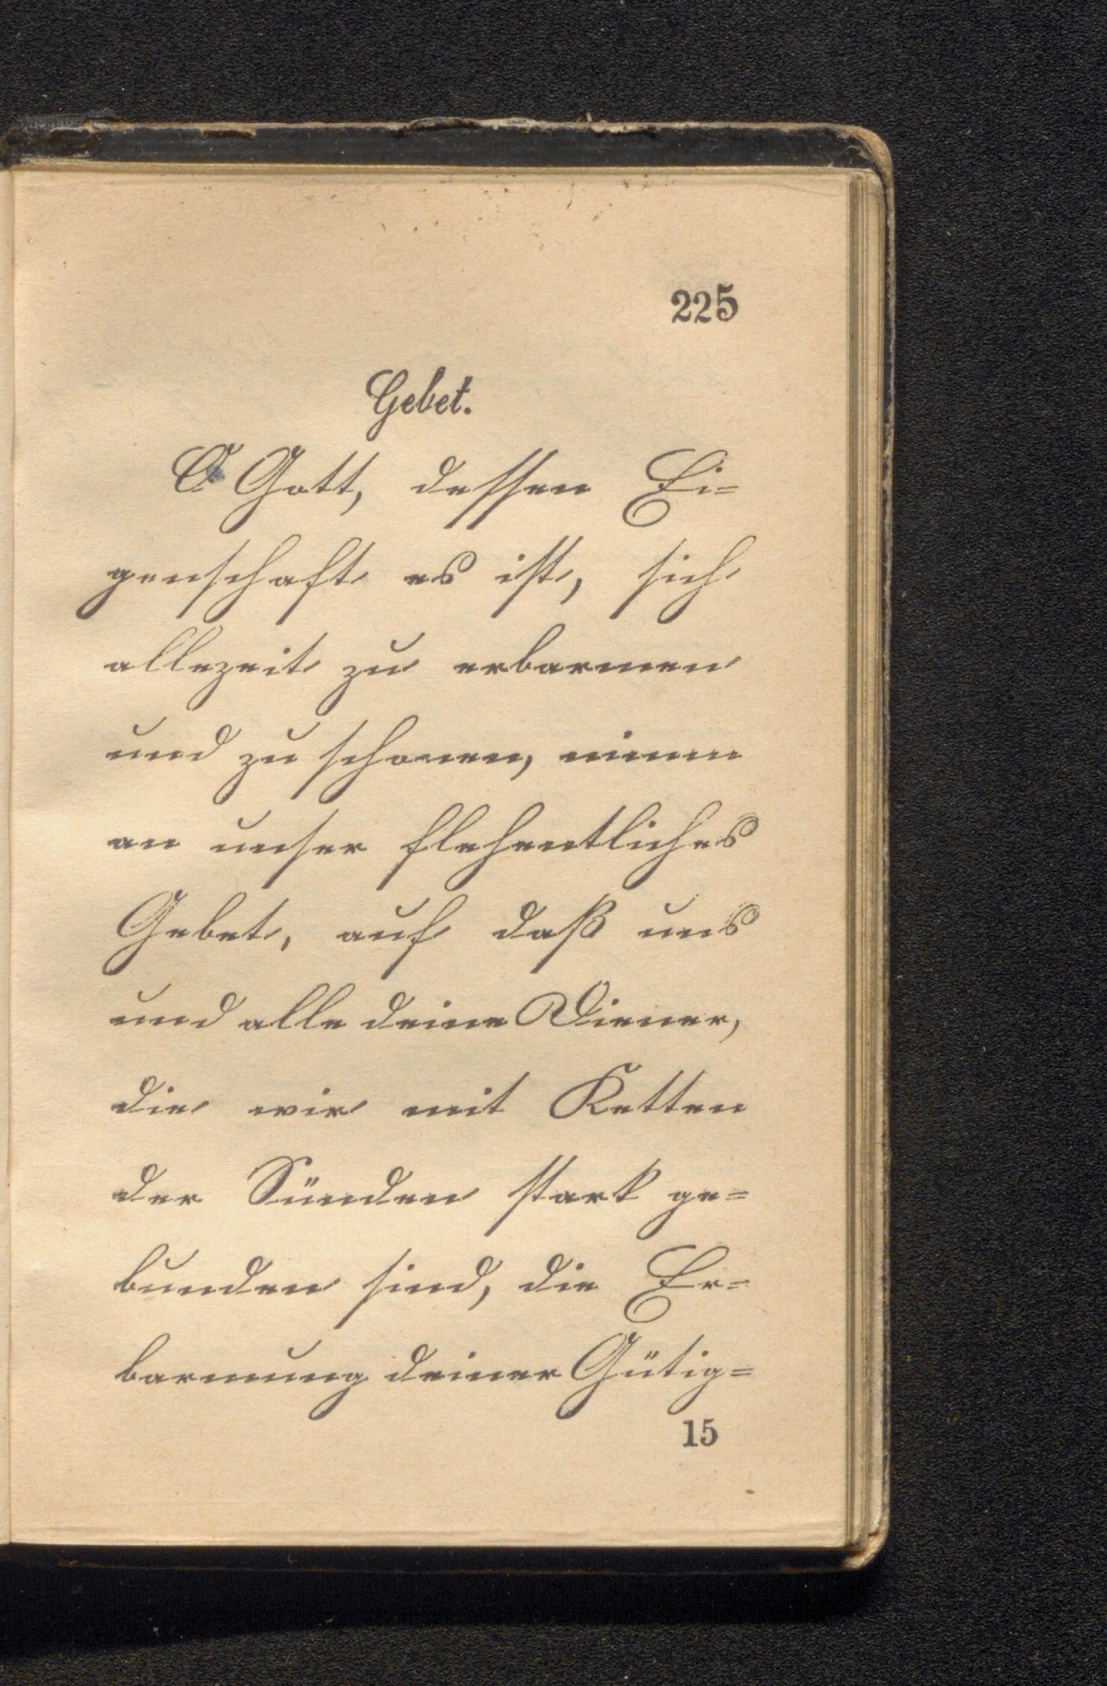 225
Gebet.
O Gott, dessen Ei=
genschaft es ist, sich
allezeit zu erbarmen
und zu schonen, nimm
an unser flehentliches
Gebet, auf daß uns
und alle deine Diener,
die wir mit Ketten
der Sünden stark ge=
bunden sind, die Er=
barmung deiner Gütig=
15